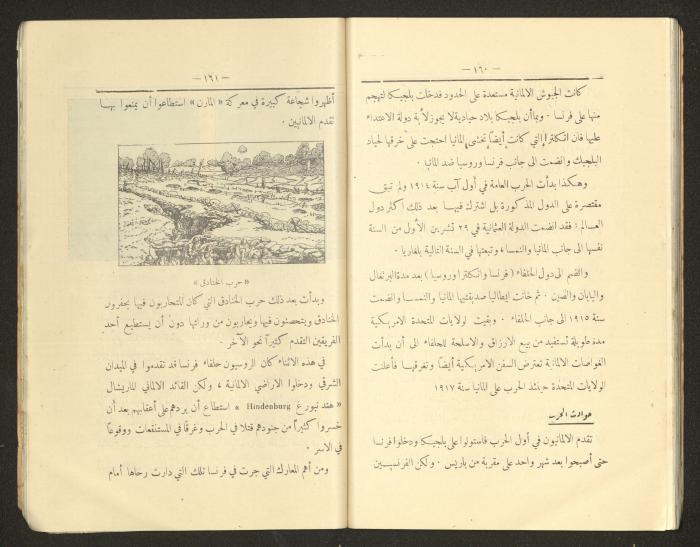 — ١٦٠ —
كانت الجيوش الالمانية مستعدة على الحدود فدخلت بلجيكا لتهجم
منها على فرنسا . وبماأن بلجيكا بلاد حيادية لا يجوز لأية دولة الاعتداء
عليها فان انكلترا التي كانت أيضاً تخشى المانيا احتجت على خرقها لحياد
البلجيك وانضمت الى جانب فرنسا وروسيا ضد المانيا .
وهكذا بدأت الحرب العامة في أول آب سنة ١٩١٤ ولم تبق
مقتصرة على الدول المذكورة بل اشترك فيها بعد ذلك اكثر دول
العالم : فقد انضمت الدولة العثمانية في ٢٩ تشرين الأول من السنة
نفسها الى جانب المانيا والنمسا ، وتبعتها في السنة التالية بلغاريا .
وانضم الى دول الحلفاء ( فرنسا وانكلترا وروسيا ) بعد مدة البرتغال
واليابان والصين . ثم خانت ايطاليا صديقتيها المانيا والنمسا وانضمت
سنة ١٩١٥ الى جانب الحلفاء . وبقيت لولايات المتحدة الامريكية
مدة طويلة تستفيد من بيع الارزاق والاسلحة للحلفاء الى أن بدأت
الغواصات الالمانية تعترض السفن الامريكية أيضاً وتغرقها فأعلنت
الولايات المتحدة حينئذ الحرب على المانيا سنة ١٩١٧
حوادث الحرب
تقدم الالمانيون في أول الحرب فاستولوا على بلجيكا ودخلوا فرنسا
حتى أصبحوا بعد شهر واحد على مقربة من باريس . ولكن الفرنسيين
— ١٦١ —
أظهروا شجاعة كبيرة في معركة « المارن » استطاعوا أن يمنعوا بها
تقدم الالمانيين .
« حرب الخنادق »
وبدأت بعد ذلك حرب الخنادق التي كان المتحاربون فيها يحفرون
الخنادق ويتحصنون فيها ويحاربون من ورائها دون أن يستطيع أحد
الفريقين التقدم كثيراً نحو الآخر .
في هذه الاثناء كان الروسيون حلفاء فرنسا قد تقدموا في الميدان
الشرقي ودخلوا الاراضي الالمانية ، ولكن القائد الالماني الماريشال
« هند نبورغ Hindenburg » استطاع أن يردهم على أعقابهم بعد أن
خسروا كثيراً من جنودهم قتلا في الحرب وغرقاً في المستنقعات ووقوعاً
في الاسر .
ومن أهم المعارك التي جرت في فرنسا تلك التي دارت رحاها أمام